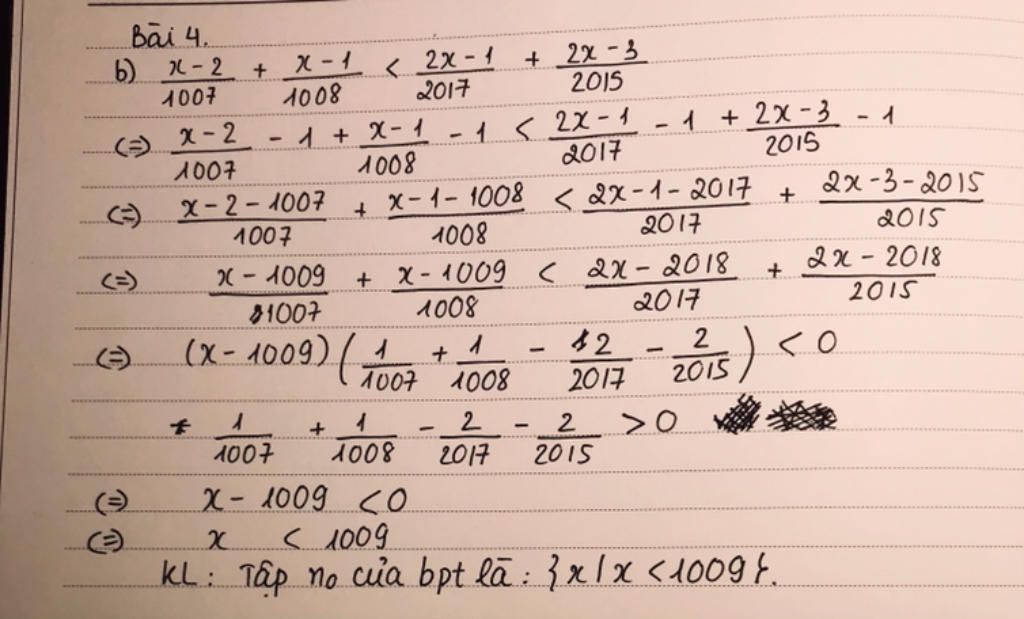 Bài 4.
b) \frac{x-2}{1007} + \frac{x-1}{1008} < \frac{2x-1}{2017} + \frac{2x-3}{2015}
(=) \frac{x-2}{1007} - 1 + \frac{x-1}{1008} - 1 < \frac{2x-1}{2017} - 1 + \frac{2x-3}{2015} - 1
(=) \frac{x-2-1007}{1007} + \frac{x-1-1008}{1008} < \frac{2x-1-2017}{2017} + \frac{2x-3-2015}{2015}
(=) \frac{x-1009}{1007} + \frac{x-1009}{1008} < \frac{2x-2018}{2017} + \frac{2x-2018}{2015}
(=) (x-1009)(\frac{1}{1007} + \frac{1}{1008} - \frac{2}{2017} - \frac{2}{2015}) < 0
* \frac{1}{1007} + \frac{1}{1008} - \frac{2}{2017} - \frac{2}{2015} > 0
(=) x - 1009 < 0
(=) x < 1009
KL: Tập no của bpt là: {x/x < 1009}.